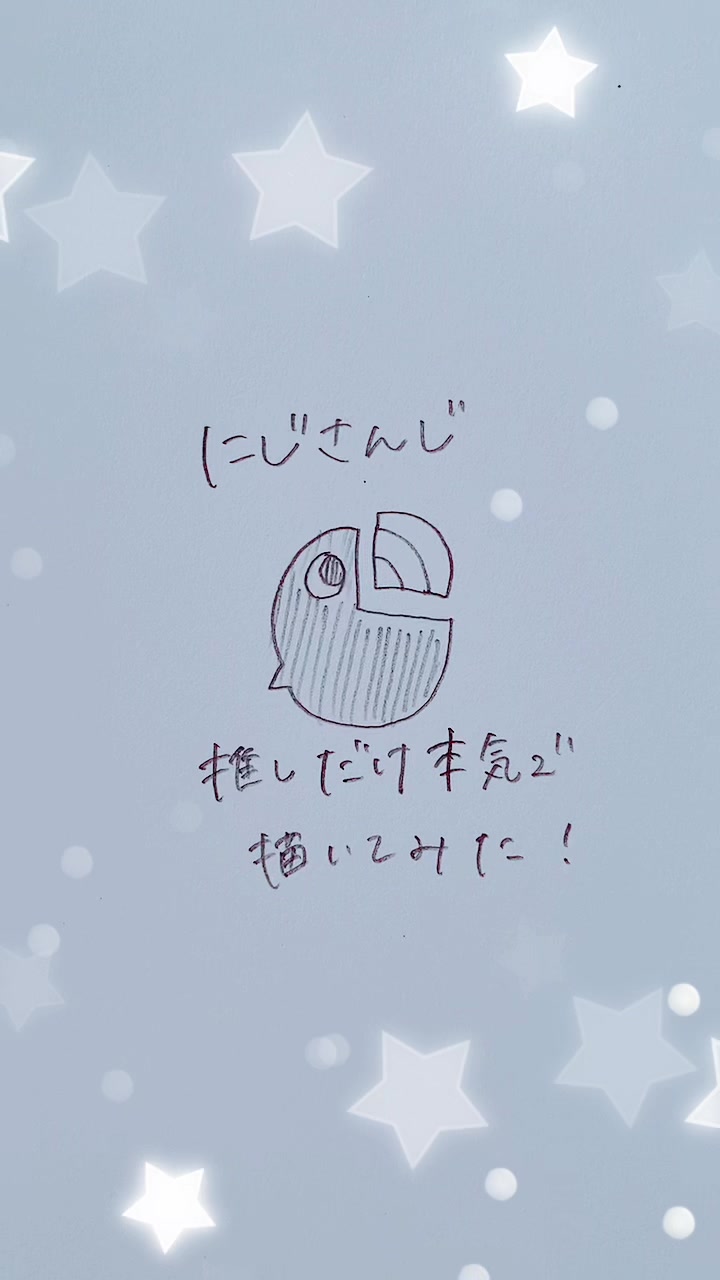 にじさんじ
推しだけ本気で
描いてみた!